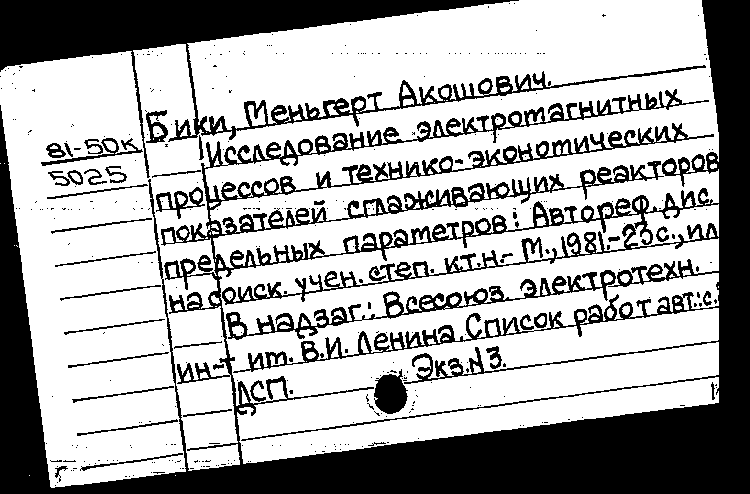 Бики, Меньгерт Акошович.
81-50к
5025
Исследование электромагнитных
процессов и технико-экономических
показателей сглаживающих реакторов
предельных параметров: Автореф. дис.
на соиск. учен. степ. к.т.н.- М., 1981.-23с., ил
В надзаг.: Всесоюз. электротехн.
ин-т им. В.И. Ленина. Список работ авт.: с.
ДСП. Экз.N3.